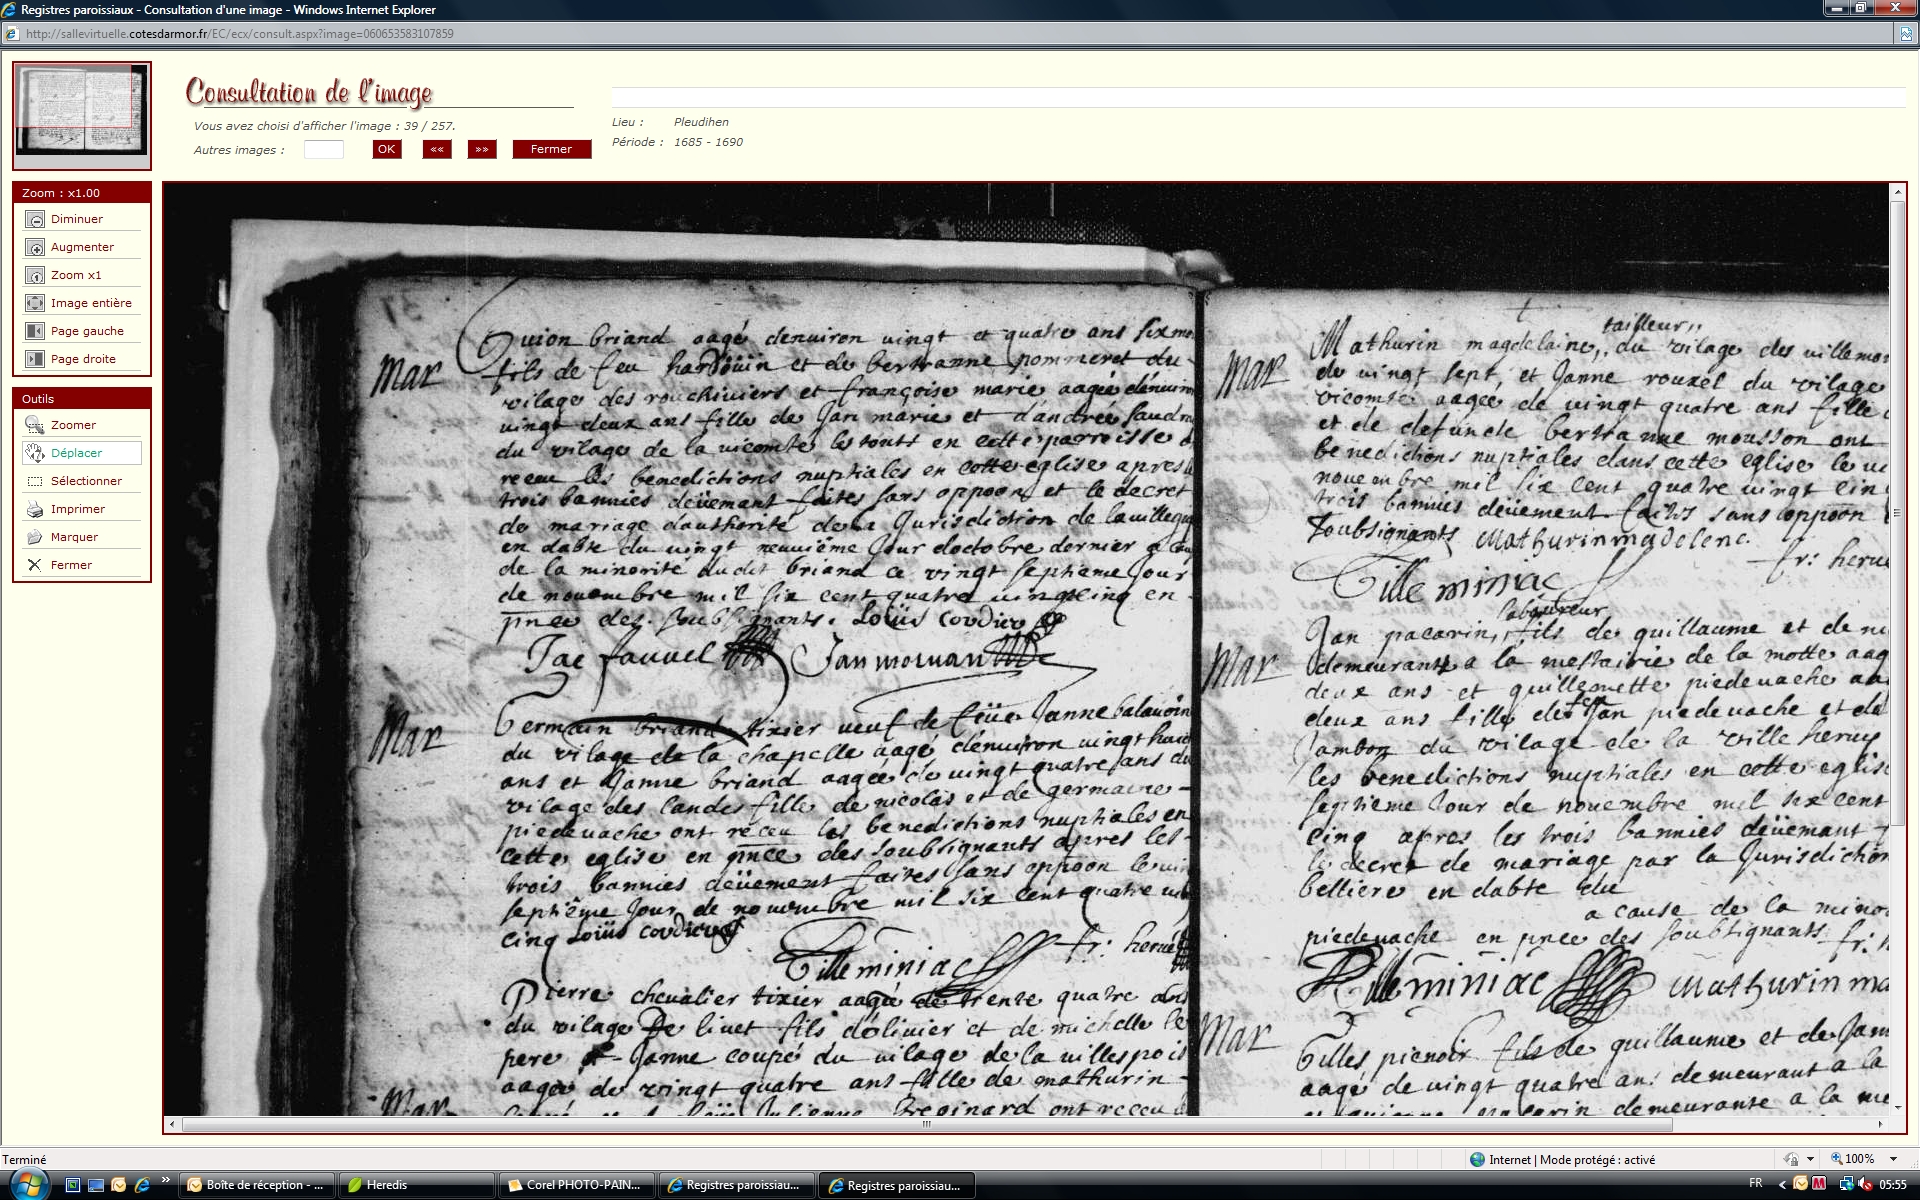 Registres paroissiaux - Consultation d'une image - Windows Internet Explorer
http://sallevirtuelle.cotesdarmor.fr/EC/ecx/consult.aspx?image=060653583107859
Consultation de l'image
Vous avez choisi d'afficher l'image : 39 / 257.
Autres images :
OK
««
»»
Fermer
Lieu : Pleudihen
Période : 1685 - 1690
Zoom : x1.00
Diminuer
Augmenter
Zoom x1
Image entière
Page gauche
Page droite
Outils
Zoomer
Déplacer
Sélectionner
Imprimer
Marquer
Fermer
Mar
Guion briand aagé denuiron vingt et quatre ans six
fils de feu hardoüin et de bertranne pommeret du
vilage des rouchiviers et françoise marie aagée denuiron
vingt deux ans fille de Jan marie et d'andrée
du vilage de la vicomte le toutt en cette parroisse
receu les benedictions nuptiales en cette eglise apres
trois bannies deüemant faites sans oppoon et le decret
de mariage dauthorité de la Jurisdiction de
en dabte du vingt neuuiême Jour doctobre dernier a
de la minorité dudit briand ce vingt septieme Jour
de nouembre mil six cent quatre vingt cinq en
pnce des soubsignants. Loüis Cordier
Jac fauvel Jan morvan
Mar
Germain briand tixier veuf de feüe Janne balauoin
du vilage de la chapelle aagé dénuiron vingt huit
ans et Janne briand aagée de vingt quatre ans du
vilage des landes fille de nicolas et de germaine
piedeuache ont receu les benedictions nuptiales en
cette eglise en pnce des soubsignants apres les
trois bannies deüement faites sans oppoon le
septiême Jour de nouembre mil six cent quatre
cinq Loüis Cordier
fr: herué
Gille miniac
Pierre chevalier tixier aagé de trente quatre ans
du vilage De livet fils dolivier et de michelle le
pere Janne coupé du vilage de la
aagée de vingt quatre ans fille de mathurin
Mar
Julienne ont receu
Mar
tailleur,,
Mathurin magdelaine,, du vilage des
de vingt sept, et Janne rouxel du vilage
vicomté aagée de vingt quatre ans fille
et de defuncte bertranne mousson ont
benedictions nuptiales dans cette eglise le
nouembre mil six cent quatre vingt cinq
trois bannies deüement faites sans oppoon
soubsignants Mathurin madelene
fr: herué
Gille miniac
laboureur
Mar
Jan pacarin, fils de guillaume et de
demeurants a la mestairie de la motte
deux ans et guillemette piedeuache
deux ans fille de feu Jan piedeuache et de
Jambon du vilage de la ville heruy
les benedictions nuptiales en cette eglise
septieme Jour de nouembre mil six cent
cinq apres les trois bannies deüemant
le decret de mariage par la Jurisdiction
belliere en dabte du
a cause de la
piedeuache en pnce des soubsignants fr:
Gille miniac Mathurin
Mar
Gilles pienoir fils de guillaume et de
aagé de vingt quatre ans demeurant a la
demeurante a la
Terminé
Internet | Mode protégé : activé
100%
Boîte de réception - ...
Heredis
Corel PHOTO-PAIN...
Registres paroissiau...
Registres paroissiau...
FR
05:55